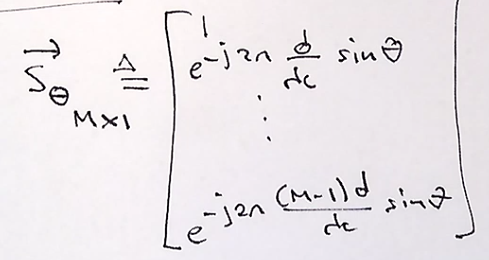 S⃗_θ M×1 ≜ [ 1
e^{-j2π d/λc sinθ}
⋮
e^{-j2π (M-1)d/λc sinθ} ]